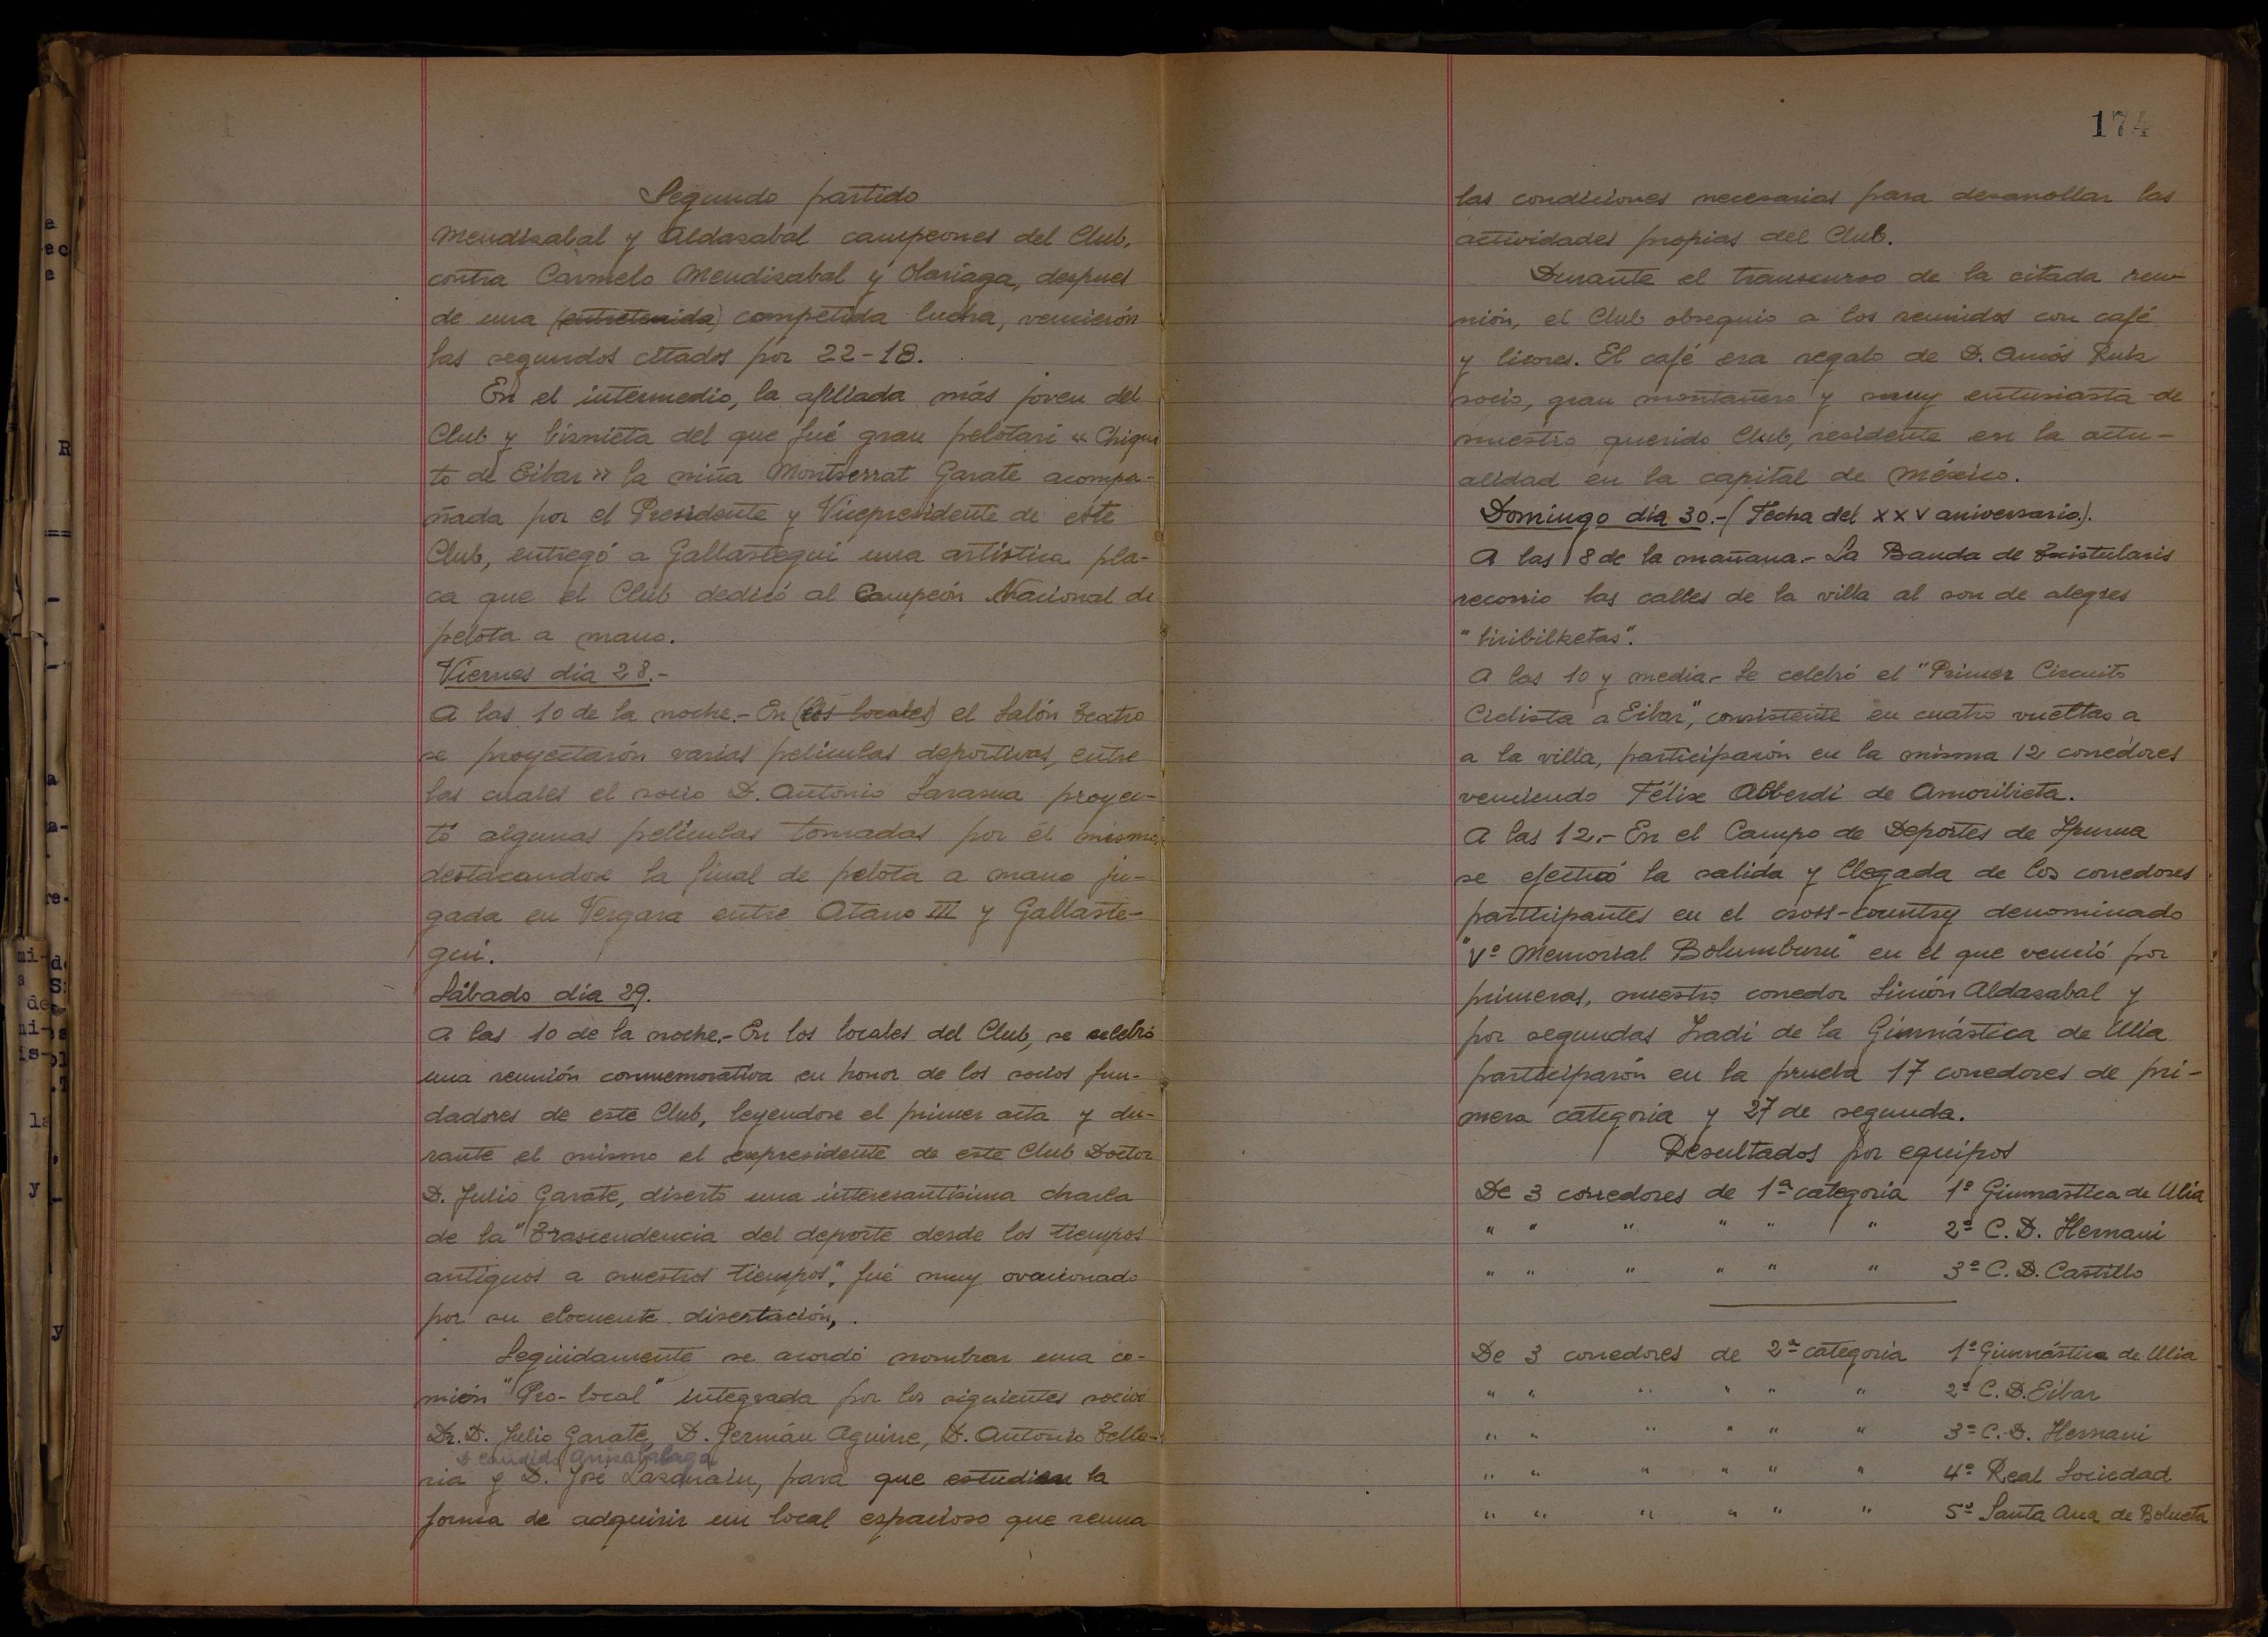 Segundo partido
Mendizabal y Aldazabal campeones del Club,
contra Carmelo Mendizabal y Olariaga, despues
de una (entretenida) competida lucha, vencierón
los segundos citados por 22-18.
En el intermedio, la afiliada más joven del
Club y bisnieta del que fué gran pelotari « Chiqui
to de Eibar » la niña Montserrat Garate acompa-
ñada por el Presidente y Vicepresidente de este
Club, entregó a Gallastegui una artística pla-
ca que el Club dedicó al Campeón Nacional de
pelota a mano.
Viernes dia 28.-
A las 10 de la noche.- En (los locales) el Salón Teatro
se proyectarón varias peliculas deportivas, entre
las cuales el socio D. Antonio Sarasua proyec-
tó algunas peliculas tomadas por él mismo,
destacandose la final de pelota a mano ju-
gada en Vergara entre Atano III y Gallaste-
gui.
Sábado día 29.
A las 10 de la noche.- En los locales del Club, se celebró
una reunión conmemorativa en honor de los socios fun-
dadores de este Club, leyendose el primer acta y du-
rante el mismo el expresidente de este Club Doctor
D. Julio Garate, disertó una interesantísima charla
de la "Trascendencia del deporte desde los tiempos
antiguos a nuestros tiempos", fué muy ovacionado
por su elocuente disertación,.
Seguidamente se acordó nombrar una co-
mición "Pro-local" integrada por los siguientes socios
Dr. D. Julio Garate, D. Germán Aguirre, D. Antonio Telle-
D. Candido Anisabalaga
ria y D. José Lasurain, para que estudien la
forma de adquirir un local espacioso que reuna
174
las condiciones necesarias para desarrollar las
actividades propias del Club.
Durante el transcurso de la citada reu-
nión, el Club obsequio a los reunidos con café
y licores. El café era regalo de D. Amós Ruiz
socio, gran montañero y muy entusiasta de
nuestro querido Club, residente en la actu-
alidad en la capital de México.
Domingo día 30.- (Fecha del XXV aniversario.).
A las 8 de la mañana.- La Banda de Txistularis
recorrio las calles de la villa al son de alegres
"biribilketas".
A las 10 y media.- Se celebró el "Primer Circuito
Ciclista a Eibar", consistente en cuatro vueltas a
a la villa, participarón en la misma 12 corredores
venciendo Félix Alberdi de Amorebieta.
A las 12.- En el Campo de Deportes de Ipurua
se efectuó la salida y llegada de los corredores
participantes en el cross-country denominado
"Vº Memorial Bolumburu" en el que venció por
primeras, nuestro corredor Simón Aldazabal y
por segundas Iradi de la Gimnástica de Ulia
participarón en la prueba 17 corredores de pri-
mera categoria y 27 de segunda.
Resultados por equipos
De 3 corredores de 1ª categoria 1º Gimnastica de Ulia
" " " " " " 2º C. D. Hernani
" " " " " " 3º C. D. Castillo
De 3 corredores de 2ª categoria 1º Gimnástica de Ulia
" " " " " " 2º C. D. Eibar
" " " " " " 3º C. D. Hernani
" " " " " " 4º Real Sociedad
" " " " " " 5º Santa Ana de Bolueta